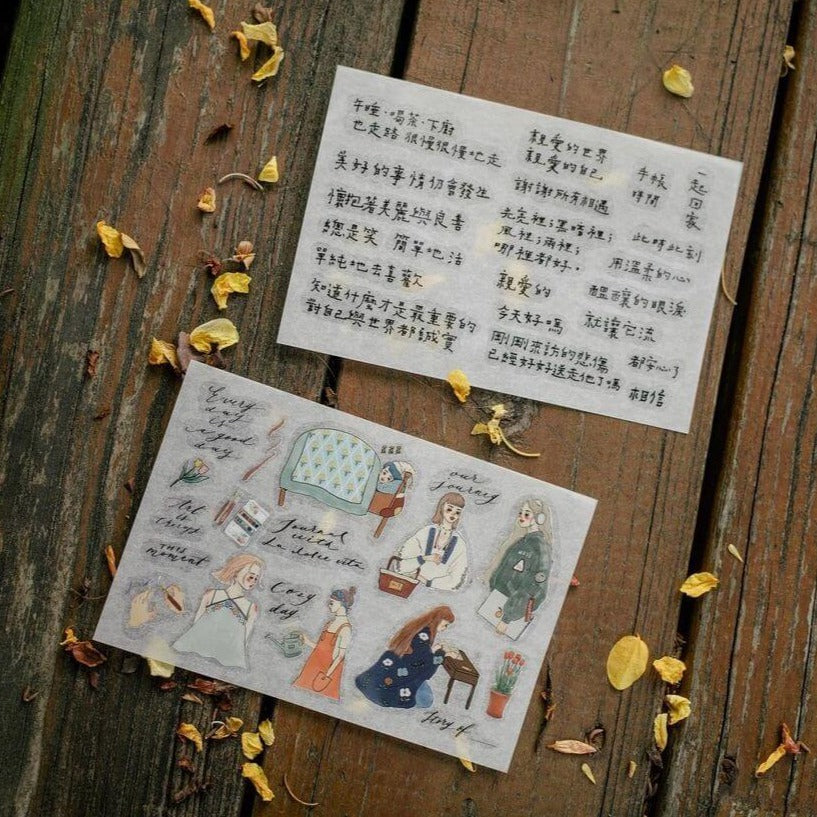 午睡·喝茶·下廚
也走路 很慢很慢地走
美好的事情仍會發生
懷抱著美麗與良善
總是笑 簡單地活
單純地去喜歡
知道什麼才是最重要的
對自己與世界都誠實
親愛的世界
親愛的自己
謝謝所有相遇
光亮裡;黑暗裡;
風裡;雨裡;
哪裡都好。
親愛的
今天好嗎
剛剛來訪的悲傷
已經好好送走他了嗎
手帳
時間
一起回家
此時此刻
用溫柔的心
醞釀的眼淚
就讓它流
都安心了
相信
Every
day
is
a good
day
Art
is
THIS
moment
Journal
with
la dolce vita
our
journey
Cozy
day
Story of